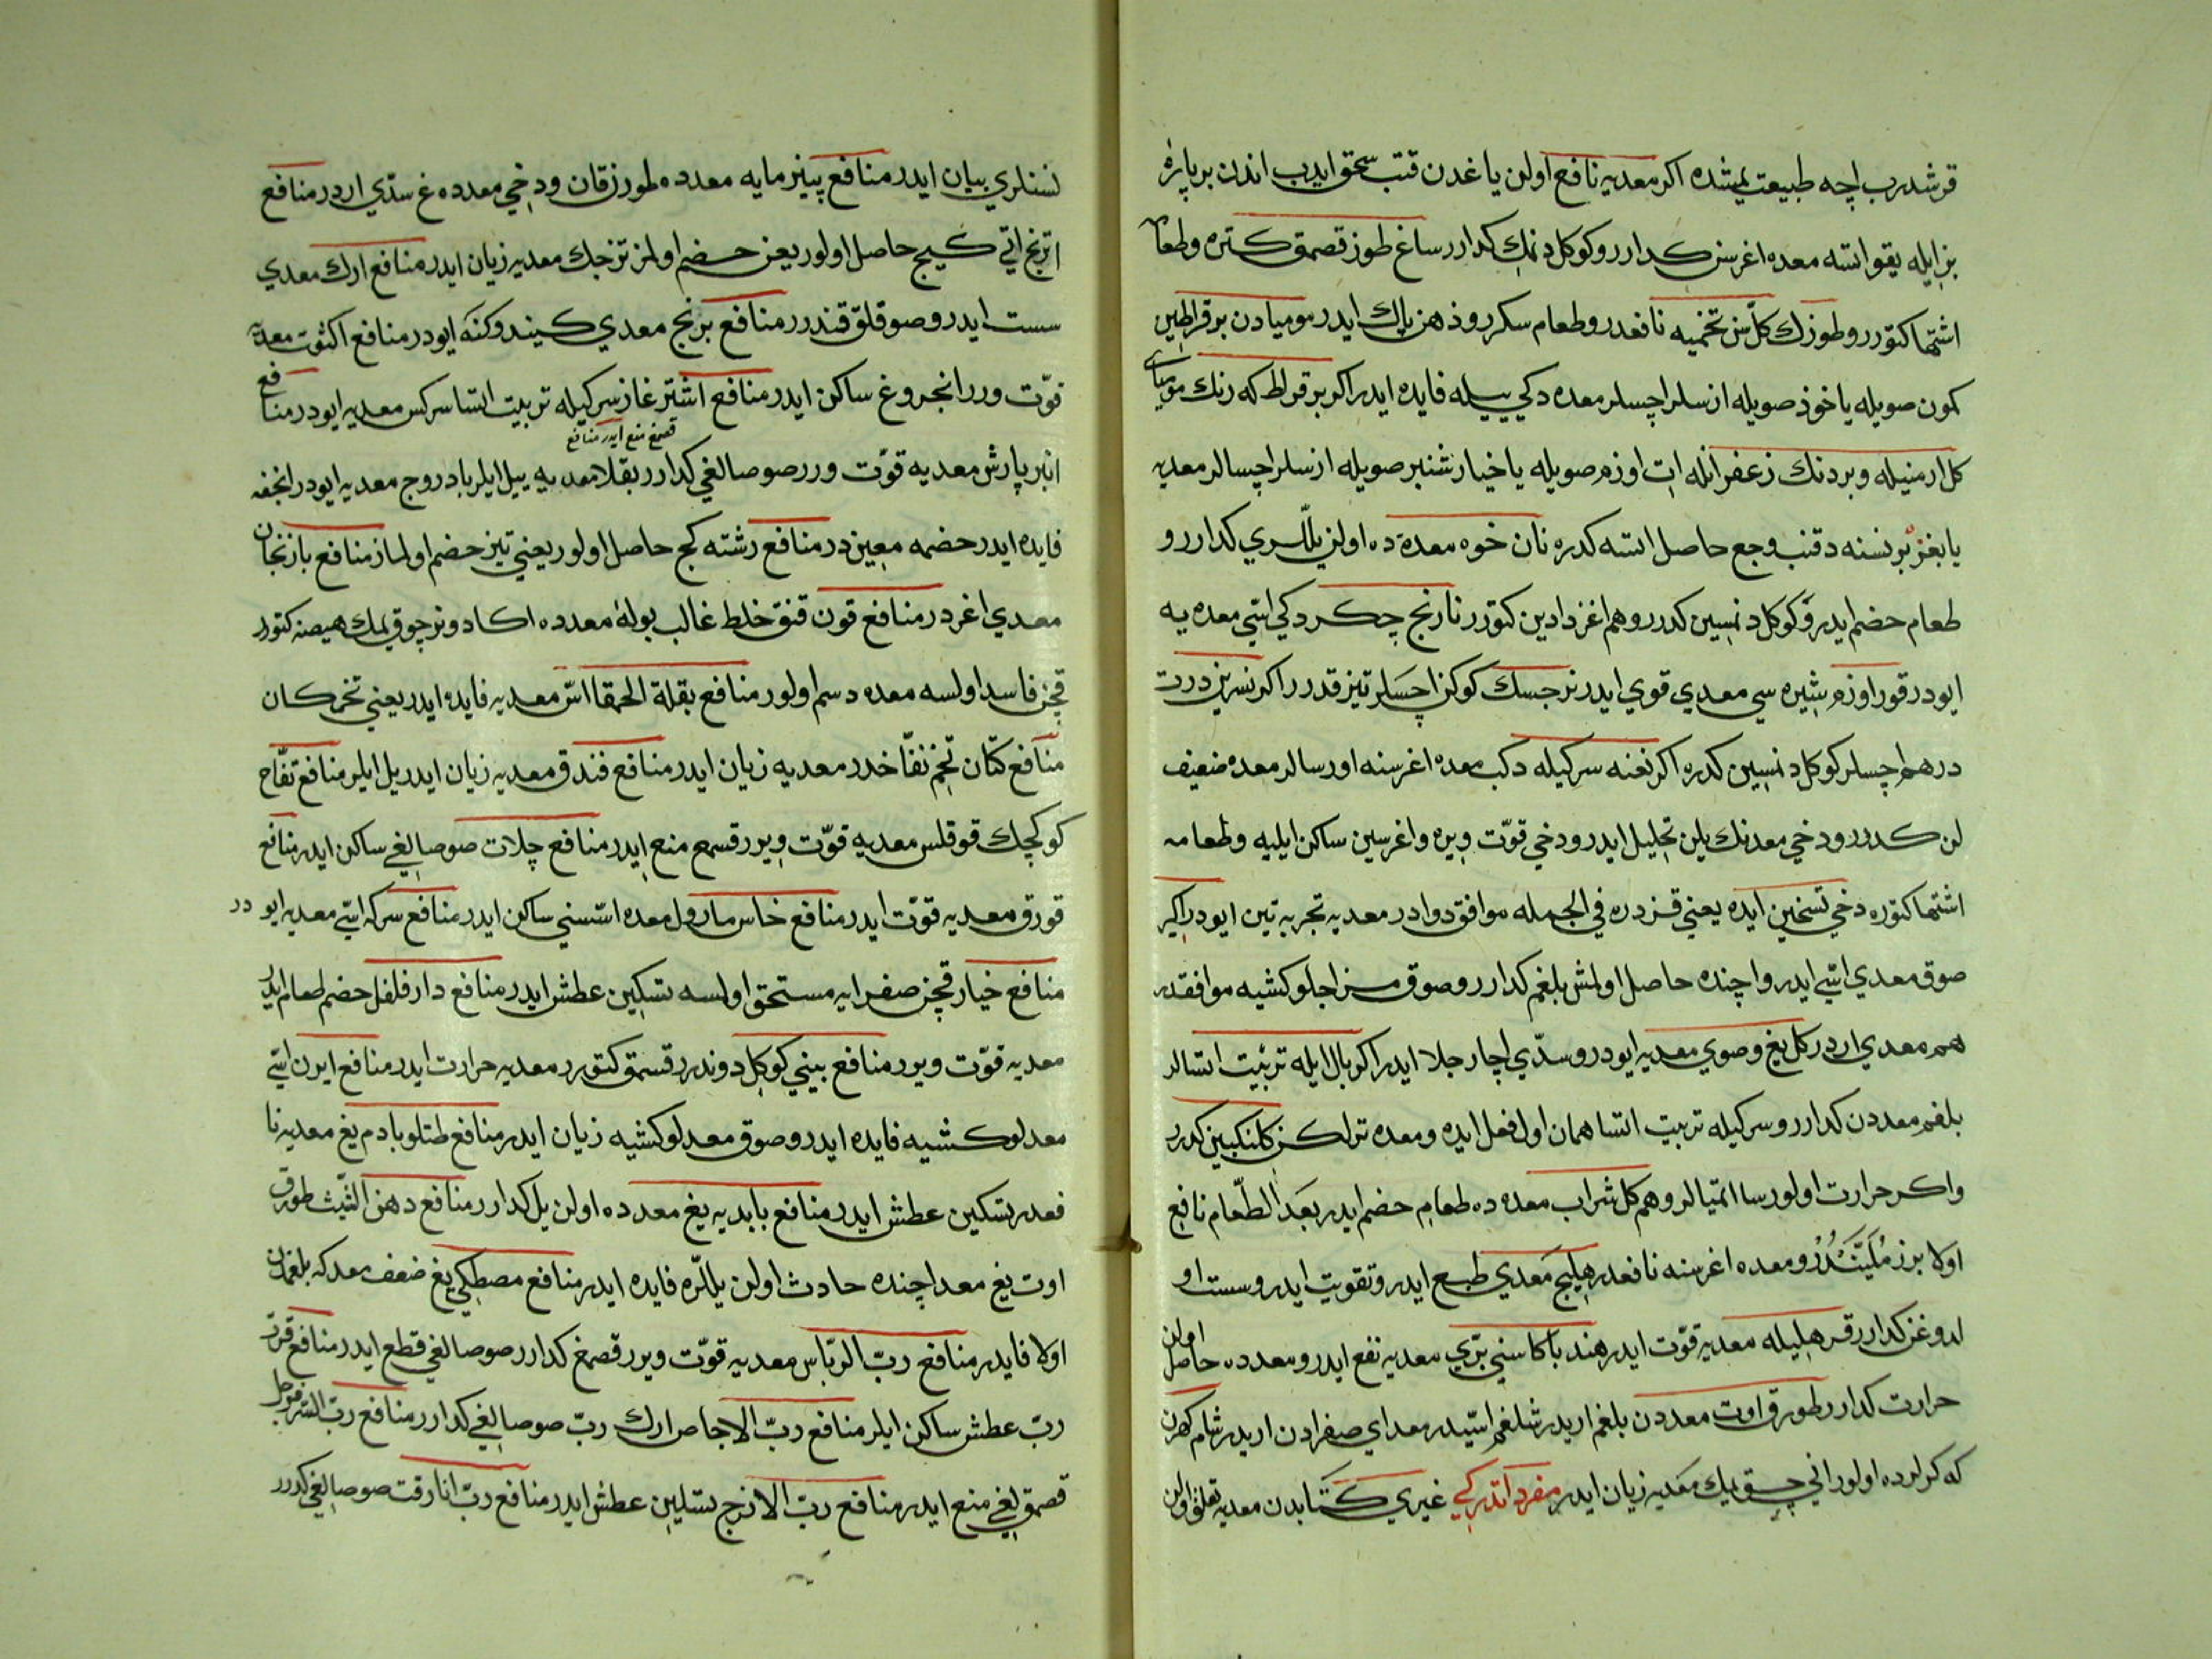 قرشدرب اچه طبیعت یمشده اکر معدیه نافع اولن یاغدن قتب سحق ایدب اندن بر پاره
بز ایله یقو ائسه معده اغرسن کدارر و کوکل دنمك کدارر ساغ طوز قصمق کتره وطعام
اشتها کتورر و طوزك کل سن تخمیه نافعدر و طعام سکرر و ذهن پاك ایدر مومیادن بر قراطین
کمون صویله یاخوذ صویله ازسلر اچسلر معده دکی ییله فایده ایدر اکر بر قرلط که رنك مومیای
کل ارمنیله و بر دنك زعفرانله ات اوزم صویله یا خیارشنبر صویله ازسلر اچسالر معدیه
یا بغز بر نسنه دقنب وجع حاصل ائسه کدره نان خوه معده ده اولن یللری کدارر و
طعام حضم ایدر و کوکل دنسین کدرر وهم اغز دادین کتورر نارنج چکردکی اسّی معده یه
ایودر قور اوزم شیره سی معدی قوی ایدر نرجسك کوکن اچسلر تیز قدرر اکر نسرین درت
درهم اچسلر کوکل دنسین کدره اکر نعنه سرکیله دکب معده اغرسنه اورسالر معده ضعیف
لن کدرر ودخی معدنك یلن تحلیل ایدر ودخی قوّت ویره واغرسین ساکن ایلیه وطعامه
اشتها کتوره دخی تسخین ایده یعنی قزدره فی الجمله موافق دوادر معدیه تجربه تین ایودر اکیر
صوق معدی اسّی ایدر واچنده حاصل اولمش بلغم کدارر و صوق مزاجلو کشیه موافقدر
هم معدی اردر کل یغ وصوی معدیه ایودر و سدّی اچار جلا ایدر اکر بال ایله تربیت اتسالر
بلغم معددن کدارر و سرکیله تربیت اتسا همان اول فعل ایده و معده تراکن کلنکبین کدرر
واکر حرارت اولورسا اتمیالر وهم کل شراب معده ده طعام حضم ایدر بعد الطّعام نافع
اولا برز ملیّندُر و معده اغرسنه نافعدر هلیلج معدی طبع ایدر و تقویت ایدر و سست او
لدوغن کدارر قره هلیله معدیه قوّت ایدر هندبا کاسنی برّی معدیه نفع ایدر و معدده حاصل اولن
حرارت کدارر طورق اوت معددن بلغم اریدر شلغم اسّیدر معدای صفرادن اریدر شام کهرن
که کولرده اولور انی چق یمك معدیه زیان ایدر مفرداتدرکی غیری کتابدن معدیه تعلق اولن
نسنلری بیان ایدر منافع پینر مایه معدده طورزقان ودخی معدده غ سدّی اردر منافع
اترنج اتی کیج حاصل اولور یعنی حضم اولمز ترجبك معدیه زیان ایدر منافع ارك معدی
سست ایدر وصوقلق قندرر منافع برنج معدی کیندوکنه ایودر منافع اکثوت معدیه
قوّت ورر انجروغ ساکن ایدر منافع اشترغاز سرکیله تربیت اتسا سرکس معدیه ایودر منافع
قصمغ منع ایدر منافع
انبرپارش معدیه قوّت ورر صوصالغی کدارر بقلا معدیه ییل ایلر بادروج معدیه ایودر انجفه
فایده ایدر حضمه معیندر منافع رشته کج حاصل اولور یعنی تیز حضم اولماز منافع بازنجان
معدی اغردر منافع قون قنق خلط غالب بوله معدده اکا دونر چوق یمك هیصنه کتورر
قچن فاسد اولسه معده ده سم اولور منافع بقلة الحمقا اسّ معدیه فایده ایدر یعنی تخمرکان
منافع کتّان تخم نفّاخدر معدیه زیان ایدر منافع فندق معدیه زیان ایدر یل ایلر منافع تفّاح
کوکچك قوقلس معدیه قوّت ویرر قسمع منع ایدر منافع چلات صوصالغی ساکن ایدر منافع
قورق معدیه قوّت ایدر منافع خاس مارول معده اسّسنی ساکن ایدر منافع سرکه اسّی معدیه ایودر
منافع خیار قچن صفرایه مستحق اولسه تسکین عطش ایدر منافع دارفلفل حضم طعام ایدر
معدیه قوّت ویرر منافع بینی کوکل دوندرر قسمق کتورر معدیه حرارت ایدر منافع ایرن اسّی
معدلو کشیه فایده ایدر و صوق معدلو کشیه زیان ایدر منافع طتلو بادم یغ معدیه نا
فعدر تسکین عطش ایدر منافع بابدیه یغ معدده اولن یل کدارر منافع دهن الشّبث طورق
اوت یغ معدا چنده حادث اولن یللره فایده ایدر منافع مصطکی یغ ضعف معدکه بلغمدن
اولا فایدر منافع ربّ الریباس معدیه قوّت ویرر قصمغ کدارر صوصالغی قطع ایدر منافع قرت
ربّ عطش ساکن ایلر منافع ربّ الاجاص ارك ربّ صوصالغی کدارر منافع ربّ السفرجل
قصمقلغی منع ایدر منافع ربّ الاترج تسکین عطش ایدر منافع ربّ انار رقت صوصالغی کدرر